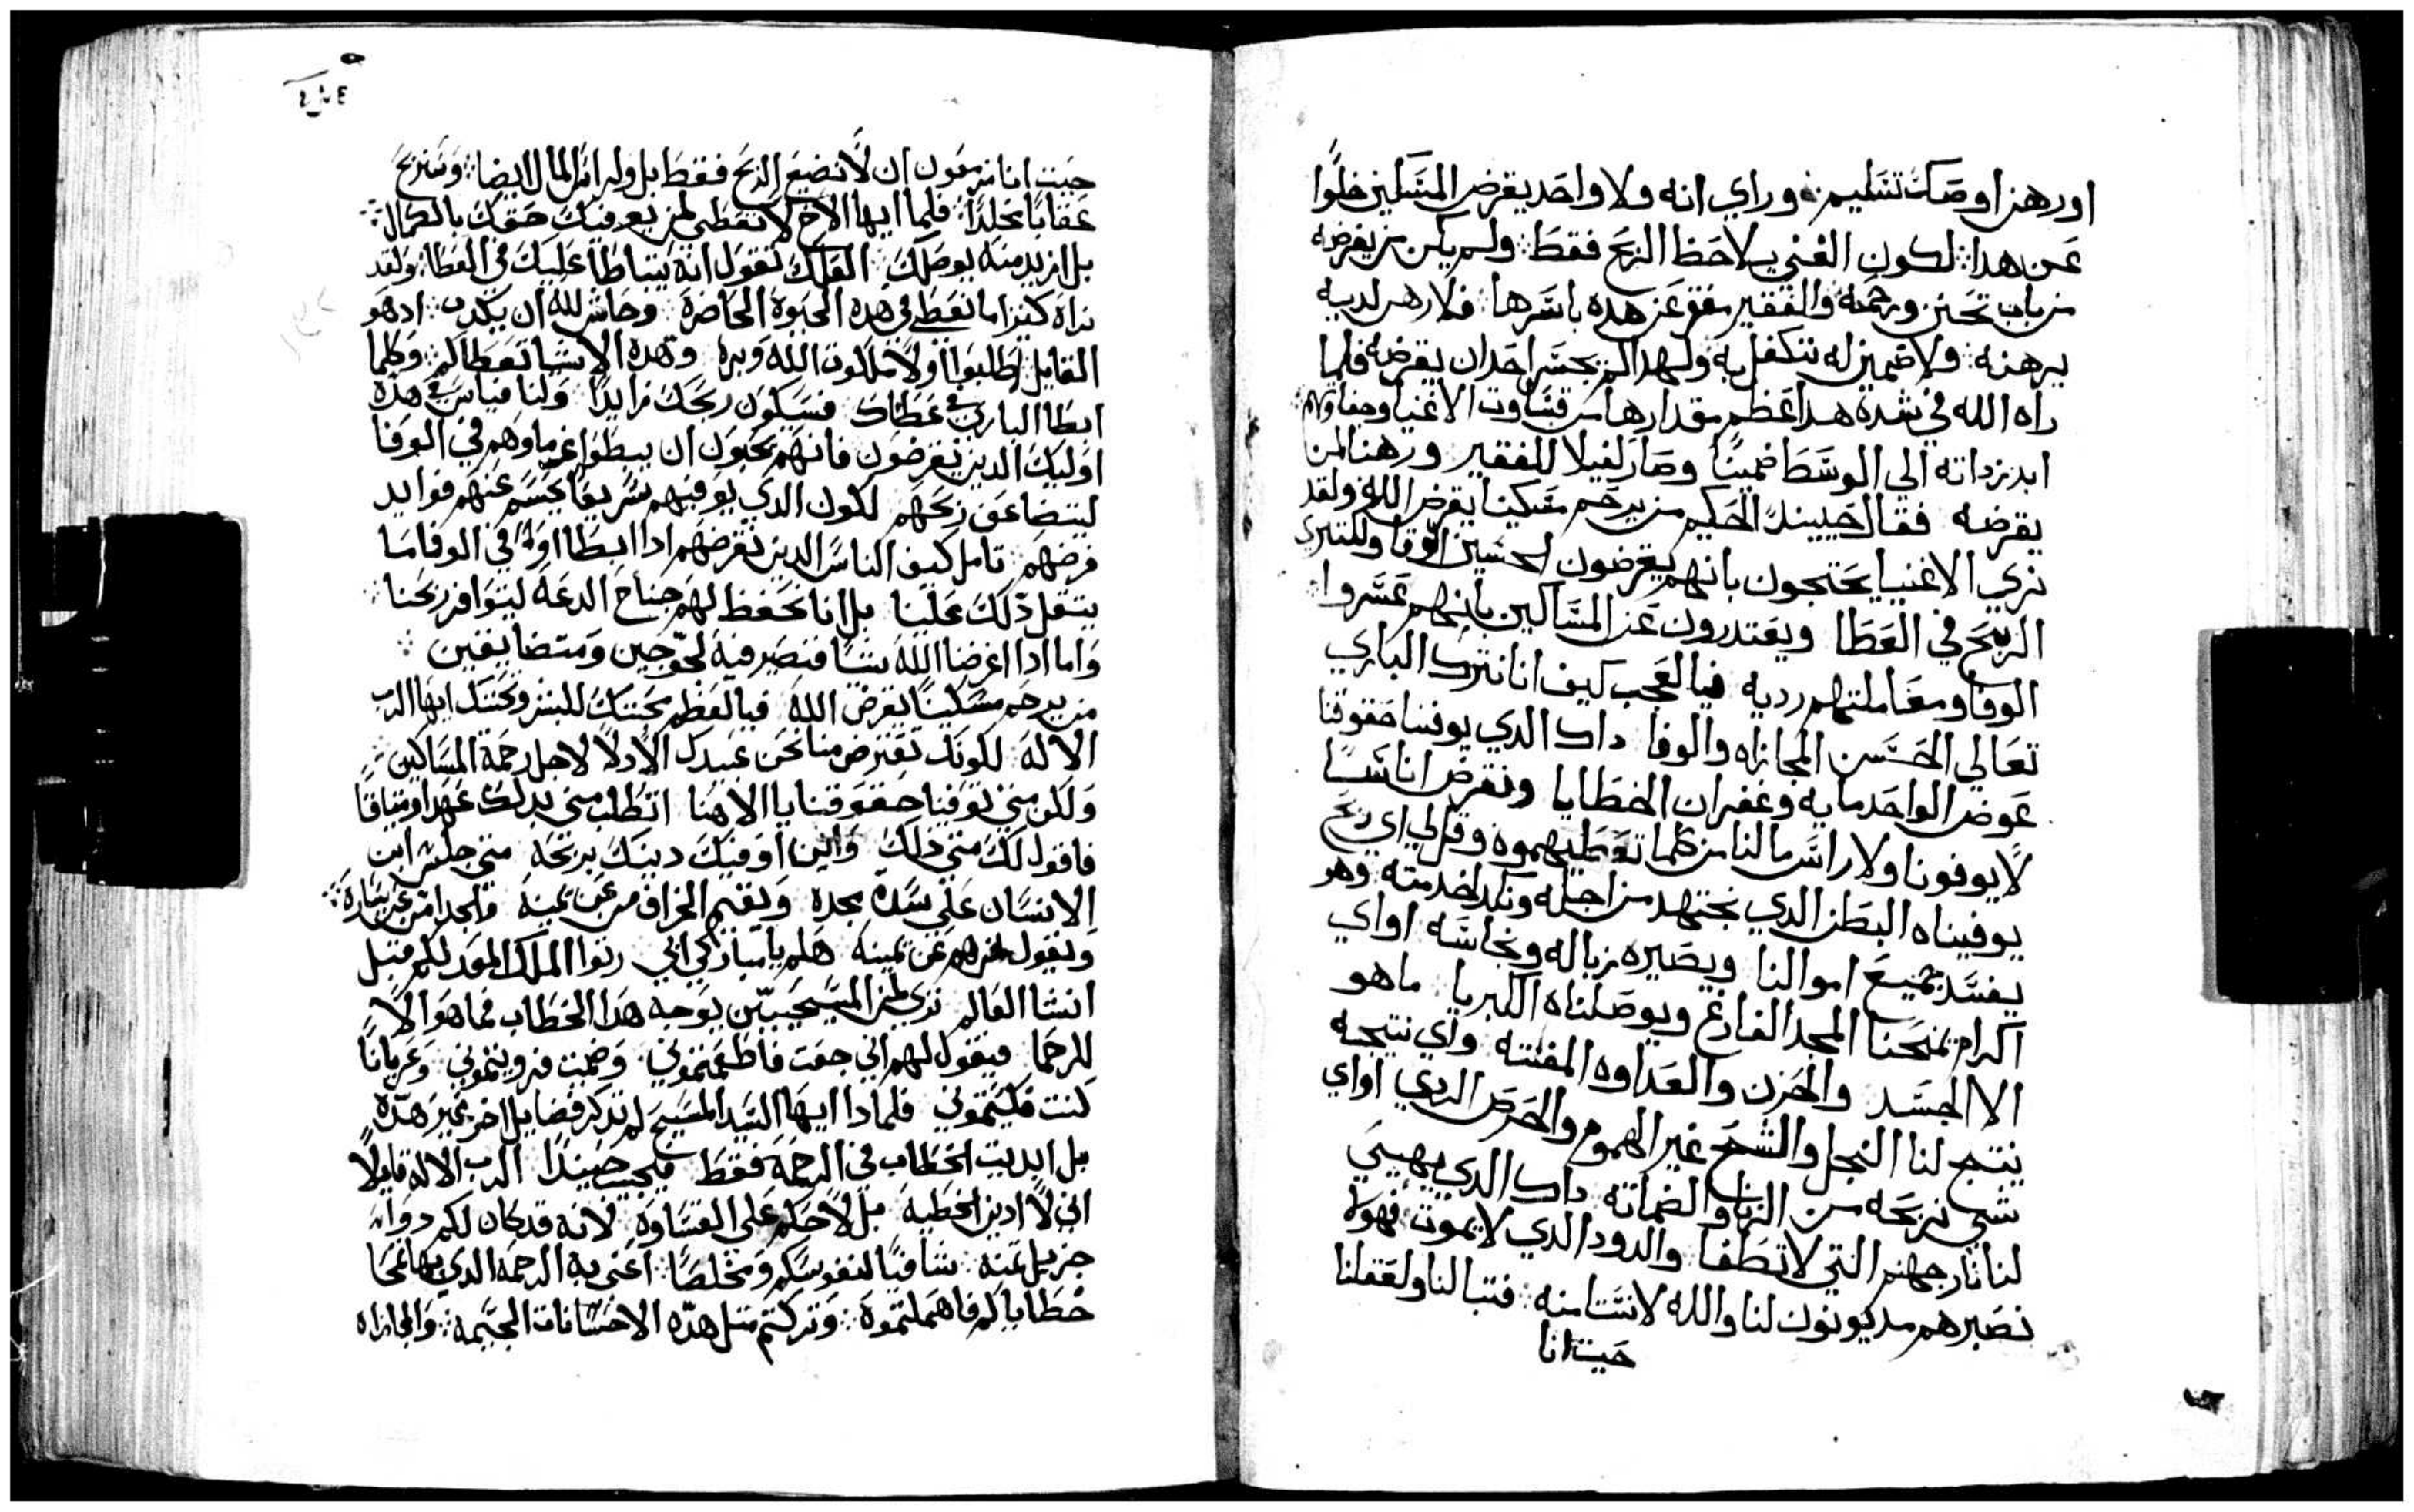 اورهن اوصك تسليم ۞ وراي انه ولا واحد يقرض المسكين خلوًا
عن هدا ۞ لكون الغني يلاحظ الربح فقط ۞ ولم يكن من يقرضه
من باب تحنن ورحمه ۞ والفقير معوز عن هده باسرها ۞ فلا رهن لديه
يرهنه ۞ ولا ضمين له يتكفل به ولهدا لم يجسر احدان يقرضه فلما
راه الله في شدة هدا عظم مقدارها من قساوت الاغنيا وجفاوتهم ۞
ابدر بداته الي الوسط ضمينًا وصار كفيلا للفقير ورهنا لمن
يقرضه فقال حينيد الحكيم من يرحم مسكينا يقرض الله ولقد
نري الاغنيا يحتجون بانهم يقرضون لحسين الوفا وللكتيري
الربح في العطا ويعتدرون عن المساكين بانهم عسروا
الوفا ومعاملتهم رديه فيا لعجب كيف اننا نترك الباري
تعالي الحسن المجازاه والوفا داك الدي يوفينا حقوقنا
عوض الواحد مايه وغفران الخطايا ونقرض اناسًا
لا يوفونا ولا راس مالنا من كلما نعطيهموه وقل لي اي ربح
يوفيناه البطن الدي نجتهد من اجله ونكد لخدمته وهو
يفسد جميع اموالنا ويصيره زباله ونجاسه اواي
اكرام تمنحنا المجد الفارغ ويوصلناه الكبريا ماهو
الا الحسد والحزن والعداوه المفتنه واي نتيجه
ينتج لنا البخل والشح غير الهموم والحرص الردي اواي
شي نربحه من الزنا والضماته داك الدي يهيي
لنا نار جهنم التي لا تطفا والدود الدي لا يموت فهولا
نصيرهم مديونون لنا والله لا نستامنه ۞ فتبا لنا ولعقلنا
حيت انا
حيت انا مزمعون ان لا نضيع الربح فقط بل ولراس المال ايضا ۞ وسنربح
عقابا مخلدًا ۞ فلما ايها الاخ لا تعطي لمن يعوفيك حقك بالكمال ۞
بل ازيد منه يوصلك لعلك تقول انه يتباطا عليك في العطا ۞ ولقد
نراه كنز اما تعطي في هده الحيوه الحاضرة وحاش لله ان يكدب ۞ ادهو
القايل اطلبوا اولا ملكوت الله وبره وهده الاشيا تعطا لكم ۞ وكلما
ابطا الباري في عطاك فسيكون ربحك زايدًا ولنا قياس في هده
اوليك الدين يقرضون فانهم يحبون ان يبطوا غرماوهم في الوفا
ليتضاعف ربحهم لكون الدي يوفيهم سريعًا يحسم عنهم فوايد
قرضهم ۞ تامل كيف الناس الدين نقرضهم ادا ابطا اوله في الوفا ما
يتقل دلك علينا بل انا نخفظ لهم جناح الدعه ليتوافر ربحنا ۞
واما ادا اقرضنا الله شيا فنصير فيه لحوجين ومتضايقين ۞
من يرحم مسكينا يقرض الله فيا لعظم محبتك للبشر وتحننك ايها الرب
الاله لكونك تقترض منا نحن عبيدك الادلا لاجل رحمة المساكين ۞
ولكن متي توفينا حقوقنا يا الاهنا اتطلب مني بدلك عهدا وميتاقًا
فاقول لك متي دلك واين اوفيك دينك بربحه متي جلس ابن
الانسان علي سدة مجده ويقيم الخراف من عن يمينه والجدا من عن يساره ۞
ويقول لمن هم عن يمينه هلم يا مباركي ابي رتوا الملك المعد لكم قبل
انشا العالم تري لمن المسيحيين يوجه هدا الخطاب فما هو الا
للرحما فيقول لهم اني جعت فاطعمتموني وضميت فرويتموني وعريانًا
كنت فكسيتموني فلمادا ايها السيد المسيح لم تدكر فضايل اخر غير هده
بل ابديت الخطاب في الرحمه فقط فيجيب حينيدًا الرب الاله قايلًا
اني لا ادين الخطيه بل لاحكم علي القساوه لانه قد كان لكم دوا
جزيل تمنه ۞ شافيًا لنفوسكم ومخلصًا ۞ اعني به الرحمه الدي بها تمحا
خطاياكم فاهملتموه ۞ وتركتم متل هده الاحسانات الجسيمه ۞ والمجازاه